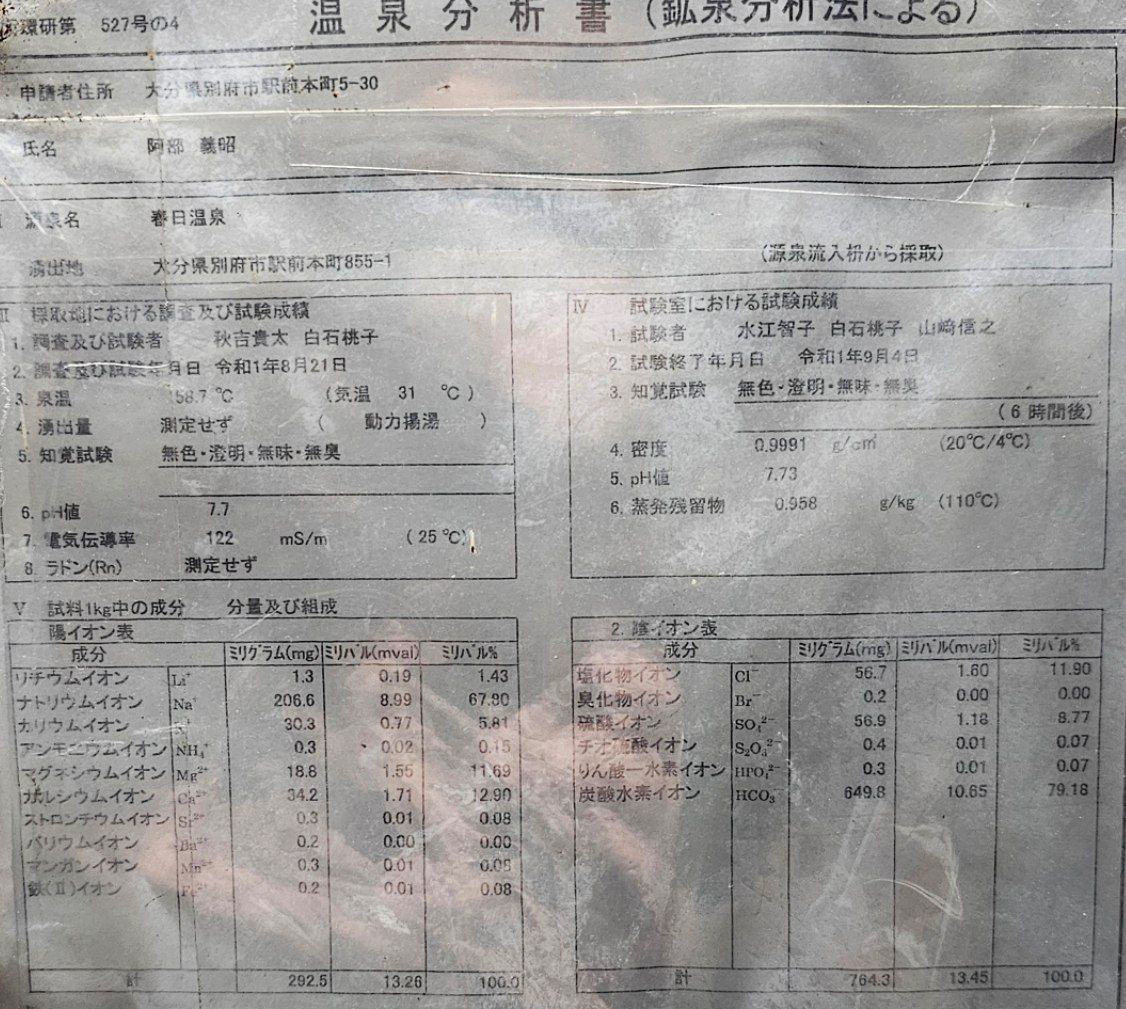 環研第 527号の4
温泉分析書(鉱泉分析法による)
申請者住所 大分県別府市駅前本町5-30
氏名 阿部 義昭
源泉名 春日温泉
湧出地 大分県別府市駅前本町855-1 (源泉流入枡から採取)
Ⅱ 採取地における調査及び試験成績
1. 調査及び試験者 秋吉貴太 白石桃子
2. 調査及び試験年月日 令和1年8月21日
3. 泉温 58.7 ℃ (気温 31 ℃)
4. 湧出量 測定せず ( 動力揚湯 )
5. 知覚試験 無色・澄明・無味・無臭
6. pH値 7.7
7. 電気伝導率 122 mS/m (25℃)
8. ラドン(Rn) 測定せず
Ⅳ 試験室における試験成績
1. 試験者 水江智子 白石桃子 山崎信之
2. 試験終了年月日 令和1年9月4日
3. 知覚試験 無色・澄明・無味・無臭
(6時間後)
4. 密度 0.9991 g/cm³ (20℃/4℃)
5. pH値 7.73
6. 蒸発残留物 0.958 g/kg (110℃)
Ⅴ 試料1kg中の成分 分量及び組成
陽イオン表
成分 ミリグラム(mg) ミリバル(mval) ミリバル%
リチウムイオン Li⁺ 1.3 0.19 1.43
ナトリウムイオン Na⁺ 206.6 8.99 67.80
カリウムイオン K⁺ 30.3 0.77 5.81
アンモニウムイオン NH₄⁺ 0.3 0.02 0.15
マグネシウムイオン Mg²⁺ 18.8 1.55 11.69
カルシウムイオン Ca²⁺ 34.2 1.71 12.90
ストロンチウムイオン Sr²⁺ 0.3 0.01 0.08
バリウムイオン Ba²⁺ 0.2 0.00 0.00
マンガンイオン Mn²⁺ 0.3 0.01 0.08
鉄(Ⅱ)イオン Fe²⁺ 0.2 0.01 0.08
計 292.5 13.26 100.0
2. 陰イオン表
成分 ミリグラム(mg) ミリバル(mval) ミリバル%
塩化物イオン Cl⁻ 56.7 1.60 11.90
臭化物イオン Br⁻ 0.2 0.00 0.00
硫酸イオン SO₄²⁻ 56.9 1.18 8.77
チオ硫酸イオン S₂O₃²⁻ 0.4 0.01 0.07
りん酸一水素イオン HPO₄²⁻ 0.3 0.01 0.07
炭酸水素イオン HCO₃⁻ 649.8 10.65 79.18
計 764.3 13.45 100.0